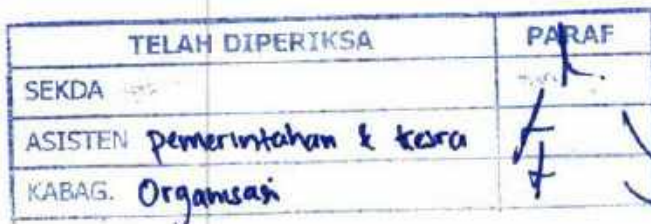 TELAH DIPERIKSA PARAF
SEKDA
ASISTEN pemerintahan & kesra
KABAG. Organisasi